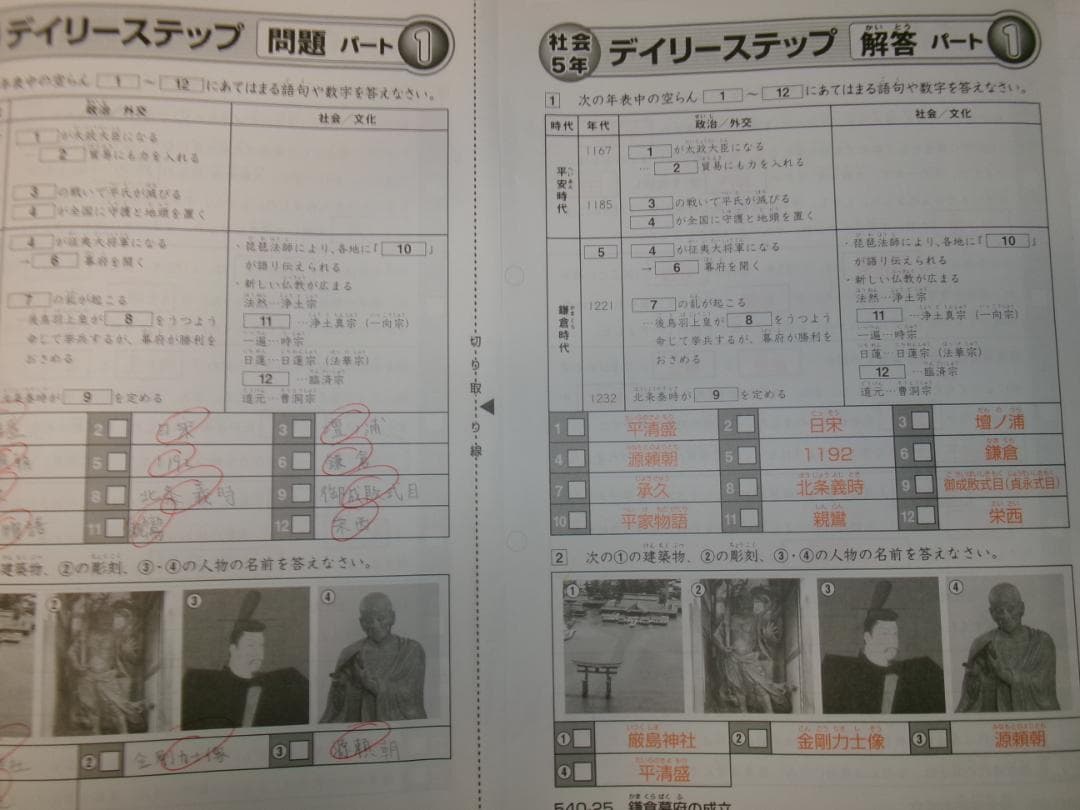 デイリーステップ 問題 パート 1
年表中の空らん 1 ～ 12 にあてはまる語句や数字を答えなさい。
政治/外交 社会/文化
1 が太政大臣になる
2 貿易にも力を入れる
3 の戦いで平氏が滅びる
4 が全国に守護と地頭を置く
4 が征夷大将軍になる
→ 6 幕府を開く
7 の乱が起こる
後鳥羽上皇が 8 をうつよう
命じて挙兵するが、幕府が勝利を
おさめる
北条泰時が 9 を定める
・琵琶法師により、各地に『 10 』
が語り伝えられる
・新しい仏教が広まる
法然…浄土宗
11 …浄土真宗 (一向宗)
一遍…時宗
日蓮…日蓮宗 (法華宗)
12 …臨済宗
道元…曹洞宗
2 日宋 3 壇ノ浦
5 1192 6 鎌倉
8 北条義時 9 御成敗式目
11 親鸞 12 栄西
建築物、②の彫刻、③・④の人物の名前を答えなさい。
② ③ ④
② 金剛力士像 ③ 源頼朝
切り取り線
社会 5年 デイリーステップ 解答 パート 1
1 次の年表中の空らん 1 ～ 12 にあてはまる語句や数字を答えなさい。
時代 年代 政治/外交 社会/文化
平安時代
1167 1 が太政大臣になる
… 2 貿易にも力を入れる
1185 3 の戦いで平氏が滅びる
4 が全国に守護と地頭を置く
鎌倉時代
5 4 が征夷大将軍になる
→ 6 幕府を開く
1221 7 の乱が起こる
…後鳥羽上皇が 8 をうつよう
命じて挙兵するが、幕府が勝利を
おさめる
1232 北条泰時が 9 を定める
・琵琶法師により、各地に『 10 』
が語り伝えられる
・新しい仏教が広まる
法然…浄土宗
11 …浄土真宗 (一向宗)
一遍…時宗
日蓮…日蓮宗 (法華宗)
12 …臨済宗
道元…曹洞宗
1 平清盛 2 日宋 3 壇ノ浦
4 源頼朝 5 1192 6 鎌倉
7 承久 8 北条義時 9 御成敗式目(貞永式目)
10 平家物語 11 親鸞 12 栄西
2 次の①の建築物、②の彫刻、③・④の人物の名前を答えなさい。
① ② ③ ④
① 厳島神社 ② 金剛力士像 ③ 源頼朝
④ 平清盛
540-25 鎌倉幕府の成立